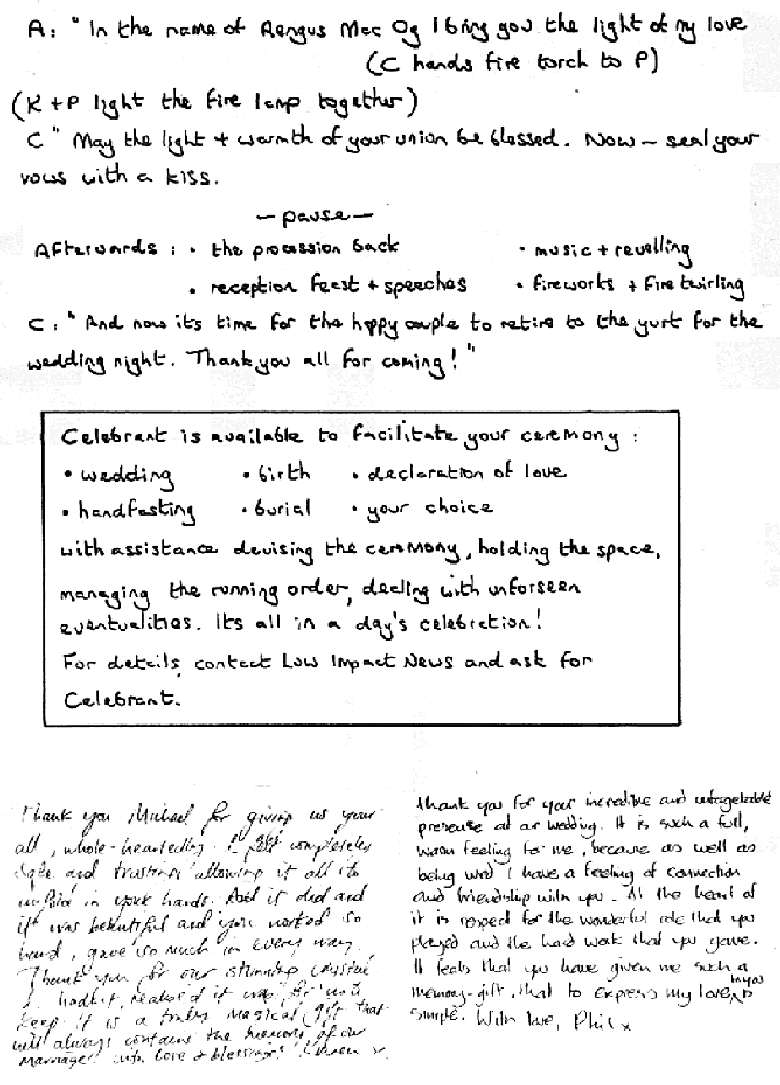 A: "In the name of Aengus Mac Og I bring you the light of my love
(C hands fire torch to P)
(K + P light the fire lamp together)
C " May the light + warmth of your union be blessed. Now – seal your
vows with a kiss.
– pause –
Afterwards : • the procession back • music + revelling
• reception feast + speeches • fireworks + fire twirling
C: "And now its time for the happy couple to retire to the yurt for the
wedding night. Thank you all for coming!"
Celebrant is available to facilitate your ceremony :
• wedding • birth • declaration of love
• handfasting • burial • your choice
with assistance devising the ceremony, holding the space,
managing the running order, dealing with unforseen
eventualities. Its all in a day's celebration!
For details, contact Low Impact News and ask for
Celebrant.
Thank you Michael for giving us your
all, whole-heartedly. I felt completely
safe and trusting allowing it all to
unfold in your hands. And it did and
it was beautiful and you worked so
hard, gave so much in every way.
Thank you for our stunning crystal
I hadn't realised it was for us to
keep it is a truly magical gift that
will always contain the memory of our
marriage. with love & blessings
Thank you for your incredible and unforgettable
presence at our wedding. It is such a full,
warm feeling for me, because as well as
being wed I have a feeling of connection
and friendship with you. At the heart of
it is respect for the wonderful role that you
played and the hard work that you gave.
It feels that you have given me such a
memory-gift, that to express my love to you is
simple. With love, Phil x